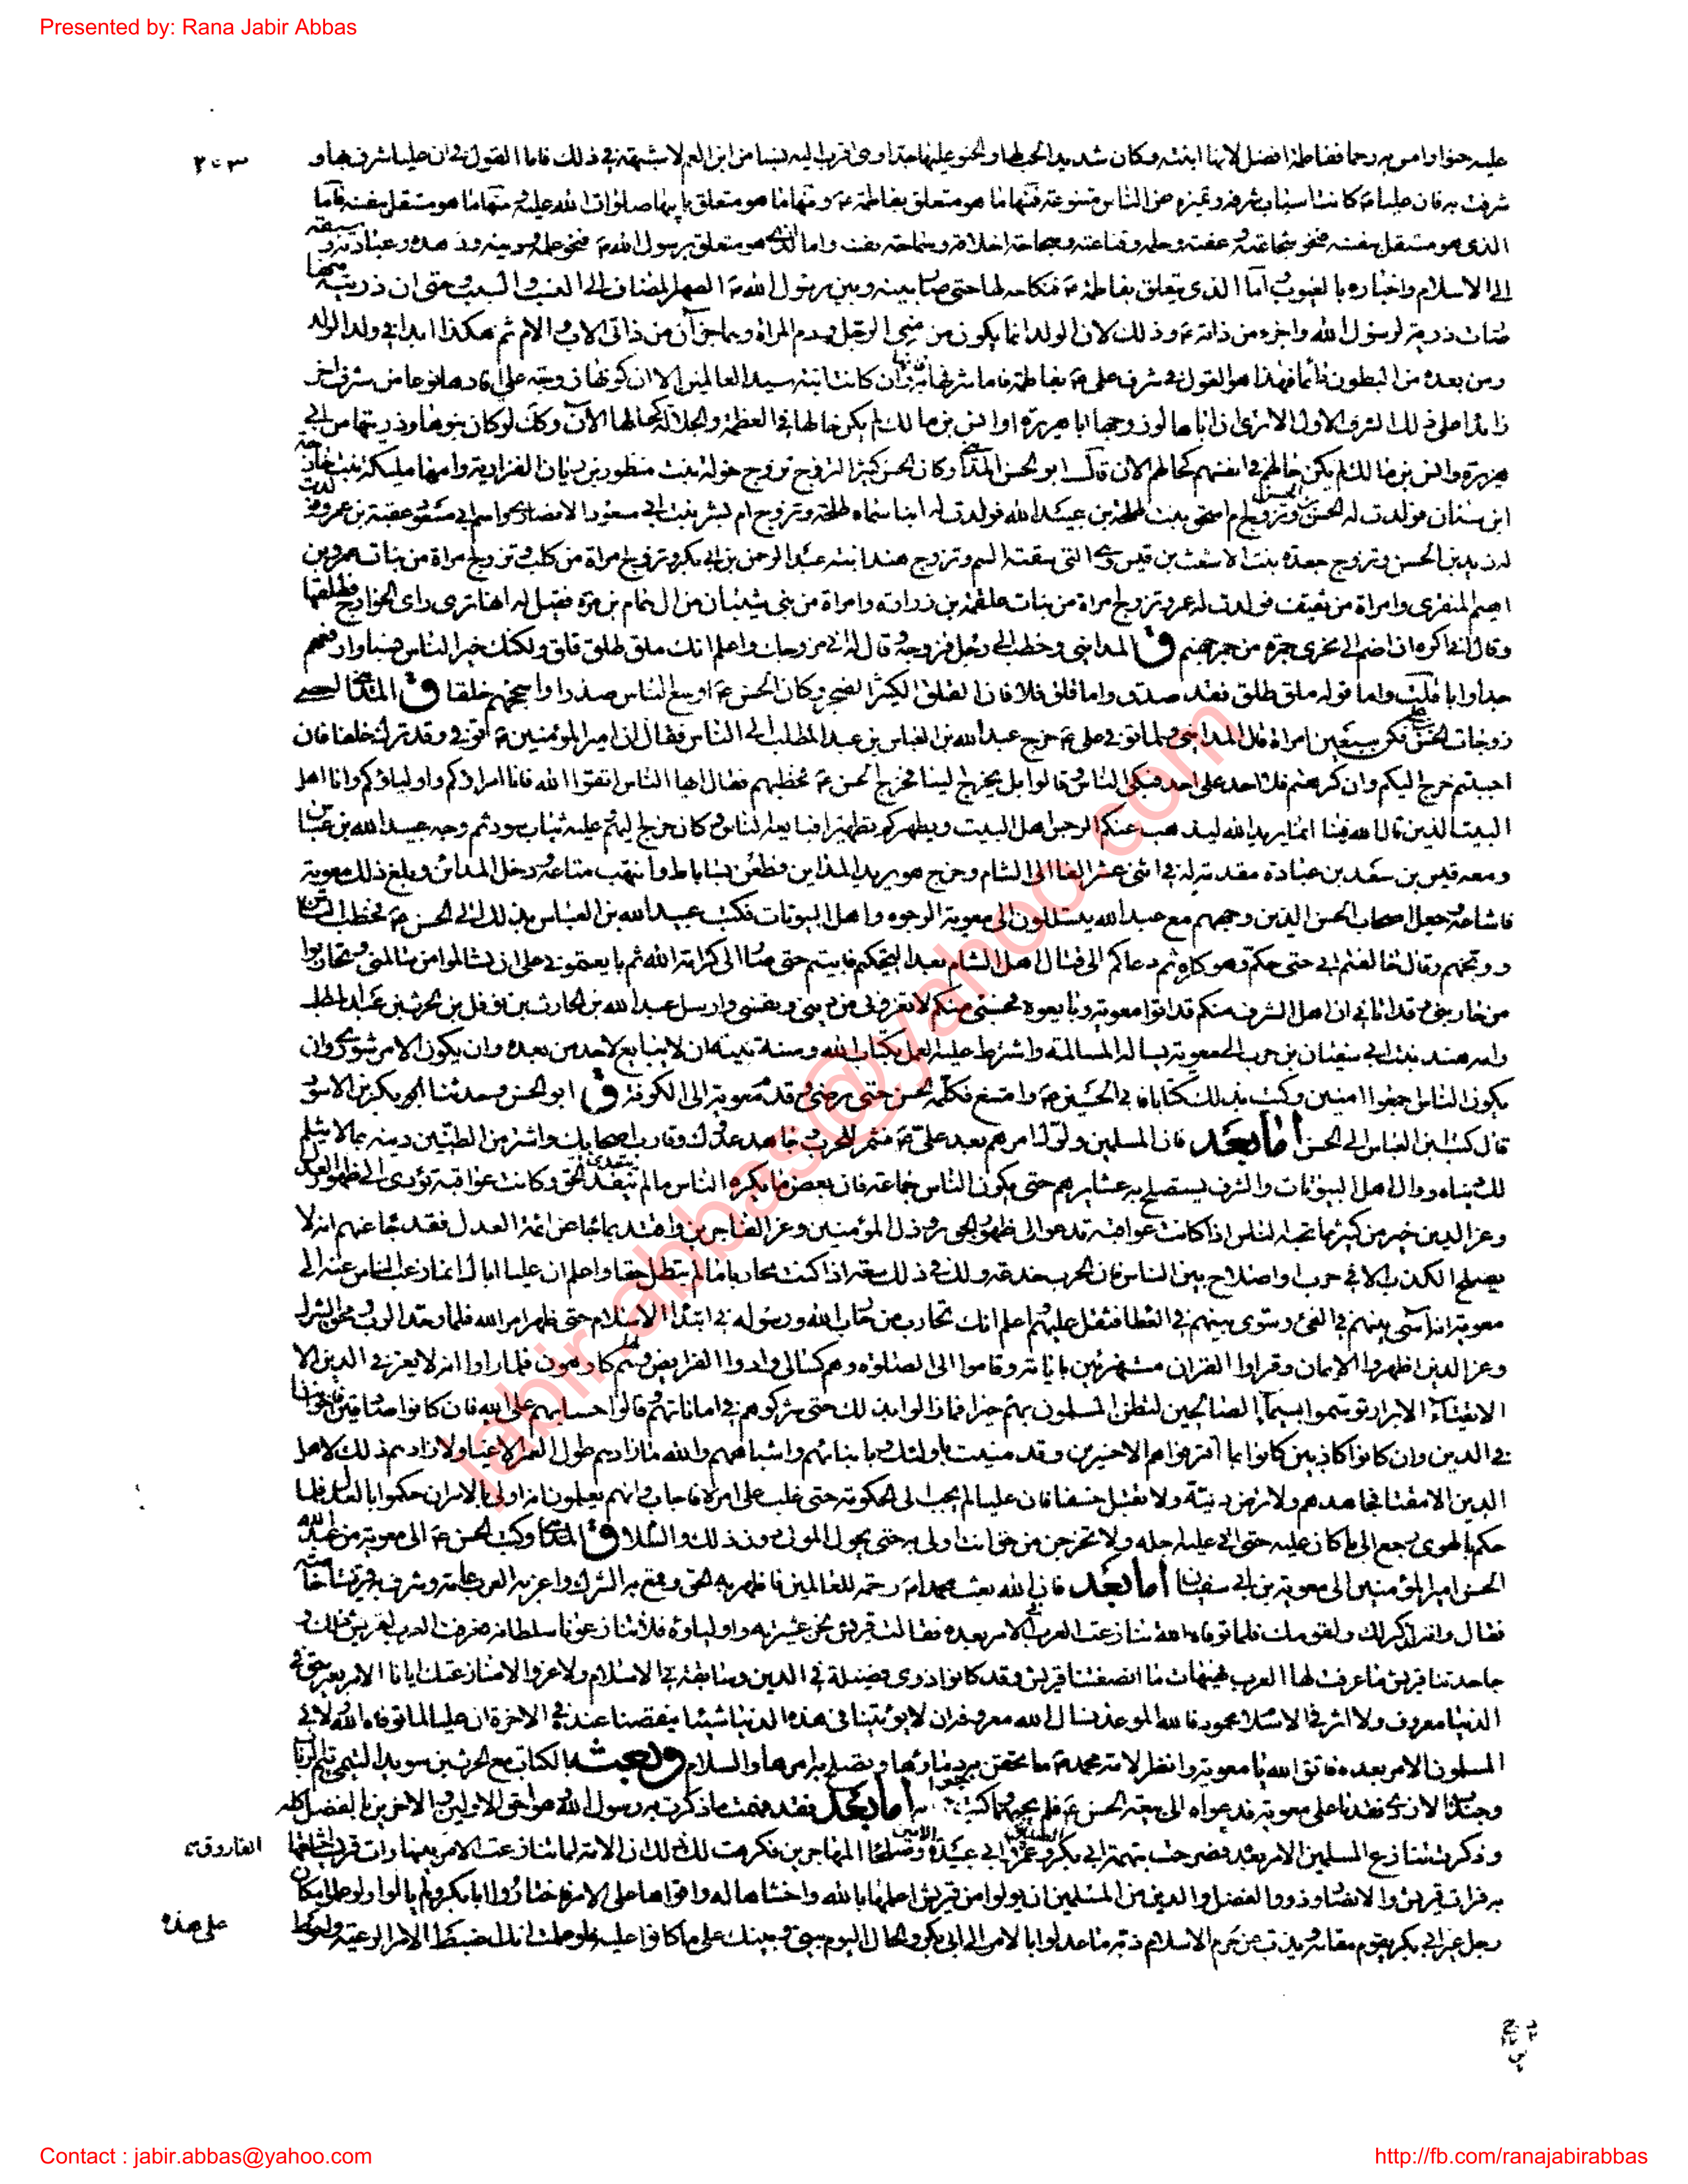 Presented by: Rana Jabir Abbas
عليه حنوا وامس به رحما ففاطمة افضل لانها ابنته وكان شديد الحب لها والحنو عليها جدا وهى اقرب اليه نسبا من ابن العم لا شبهة فى ذلك فاما القول فى ان عليا شرف بها او
شرفت به فان عليا ع كانت اسباب شرفه وتميزه عن الناس متنوعة فمنها ما هو متعلق بفاطمة ع ومنها ما هو متعلق بابيها صلوات الله عليه ومنها ما هو مستقل بنفسه فاما
الذى هو مستقل بنفسه فنحو شجاعته وعفته وحلمه وقناعته وسجاحة اخلاقه وسماحة نفسه واما الذى هو متعلق برسول الله ص فنحو علمه ودينه وزهده وعبادته وسبقه
الى الاسلام واخباره بالغيوب واما الذى يتعلق بفاطمة ع فنكاحه لها حتى صار بينه وبين رسول الله ص الصهر المضاف الى النسب والسبب حتى ان ذريته منها
صارت ذرية لرسول الله واجزاء من ذاته ع وذلك لان الولد انما يكون من منى الرجل ودم المراة وهما جزآن من ذاتى الاب والام ثم هكذا ابدا فى ولد الولد
ومن بعده من البطون دائما فهذا هو القول فى شرف على ع بفاطمة فاما شرفها به فانها وان كانت ابنة سيد العالمين الا ان كونها زوجة على افادها نوعا من شرف اخر
زائدا على ذلك الشرف الاول الا ترى ان اباها لو زوجها ابا هريرة او انس بن مالك لم يكن حالها فى العظمة والجلالة كحالها الآن وكك لو كان بنوها وذريتها من ابى
هريرة وانس بن مالك لم يكن حالهم فى انفسهم كحالهم الان قال ابو الحسن المداينى وكان الحسن كثير التزوج تزوج خولة بنت منظور بن زبان الفزارية وامها مليكة بنت خارجة
ابن سنان فولدت له الحسن بن الحسن وتزوج ام اسحق بنت طلحة بن عبيد الله فولدت له ابنا سماه طلحة وتزوج ام بشر بنت ابى مسعود الانصارى واسم ابى مسعود عقبة بن عمرو فولدت
له زيد بن الحسن وتزوج جعدة بنت الاشعث بن قيس وهى التى سقته السم وتزوج هندا ابنة عبد الرحمن بن ابى بكر وتزوج امراة من كلب وتزوج امراة من بنات عمرو بن
اهيم المنقرى وامراة من ثقيف فولدت له عمر وتزوج امراة من بنات علقمة بن زرارة وامراة من بنى شيبان من ال همام بن مرة فقيل له انها ترى راى الخوارج فطلقها
وقال انى اكره ان اضم الى نحرى جمرة من جمر جهنم ق المداينى وخطب الى رجل فزوجه وقال له انى مزوجك واعلم انك ملق طلق غلق ولكنك خير الناس نسبا وارفعهم
جدا وابا قلت واما قوله ملق طلق فقد صدق واما قوله غلق فلا فان الغلق الكثير الضجر وكان الحسن ع اوسع الناس صدرا واسجحهم خلقا ق المداينى احصيت
زوجات الحسن بن على فكن سبعين امراة قال المداينى ولما توفى على ع خرج عبد الله بن العباس بن عبد المطلب الى الناس فقال ان امير المؤمنين ع توفى وقد ترك خلفا فان
اجبتم خرج اليكم وان كرهتم فلا احد على احد فبكى الناس وقالوا بل يخرج الينا فخرج الحسن ع فخطبهم فقال ايها الناس اتقوا الله فانا امراؤكم واولياؤكم وانا اهل
البيت الذين قال الله فينا انما يريد الله ليذهب عنكم الرجس اهل البيت ويطهركم تطهيرا فبايعه الناس وكان خرج اليهم وعليه ثياب سود ثم وجه عبيد الله بن عباس
ومعه قيس بن سعد بن عبادة مقدمة له فى اثنى عشر الفا الى الشام وخرج هو يريد المداين فطعن بساباط وانتهب متاعه ودخل المدائن وبلغ ذلك معوية
فاشاعه وجعل اصحاب الحسن الذين وجههم مع عبد الله يتسللون الى معوية الوجوه واهل البيوتات فكتب عبيد الله بن العباس بذلك الى الحسن ع فخطب الناس
ووبخهم وقال خالفتم ابى حتى حكم وهو كاره ثم دعاكم الى قتال اهل الشام بعد التحكيم فابيتم حتى صار الى كرامة الله ثم بايعتمونى على ان تسالموا من سالمنى وتحاربوا
من حاربنى وقد اتانى ان اهل الشرف منكم قد اتوا معوية وبايعوه فحسبى منكم لا تغرونى من دينى ونفسى وارسل عبد الله بن الحارث بن نوفل بن الحرث بن عبد المطلب
وامه هند بنت ابى سفيان بن حرب الى معوية يساله المسالمة واشترط عليه العمل بكتاب الله وسنة نبيه وان لا يبايع لاحد من بعده وان يكون الامر شورى وان
يكون الناس اجمعون امنين وكتب بذلك كتابا فابى الحسين ع وامتنع فكلمه الحسن حتى رضى وقدم معوية الى الكوفة ق ابو الحسن وحدثنا ابو بكر بن الاسود
قال كتب ابن العباس الى الحسن اما بعد فان المسلمين ولوك امرهم بعد على ع فشمر للحرب وجاهد عدوك وقارب اصحابك واشتر من الظنين دينه بما لا يثلم
لك دينا ووال اهل البيوتات والشرف تستصلح به عشايرهم حتى يكون الناس جماعة فان بعض ما يكره الناس ما لم يتعد الحق وكانت عواقبه تؤدى الى ظهور العدل
وعز الدين خير من كثير مما يحبه الناس اذا كانت عواقبه تدعو الى ظهور الجور وذل المؤمنين وعز الفاجرين واقتد بما جاء عن ائمة العدل فقد جاء عنهم انه لا
يصلح الكذب الا فى حرب او اصلاح بين الناس فان الحرب خدعة ولك فى ذلك سعة اذا كنت محاربا ما لم تبطل حقا واعلم ان عليا اباك انما رغب الناس عنه الى
معوية انه اسى بينهم فى الفئ وسوى بينهم فى العطا فثقل عليهم واعلم انك تحارب من حارب الله ورسوله فى ابتداء الاسلام حتى ظهر امر الله فلما وحد الرب ومحق الشرك
وعز الدين اظهروا الايمان وقراوا القران مستهزئين باياته وقاموا الى الصلوة وهم كسالى وادوا الفرايض وهم لها كارهون فلما راوا انه لا يعز فى الدين الا
الاتقياء الابرار توسموا بسيماء الصالحين ليظن المسلمون بهم خيرا فما زالوا بذلك حتى شركوهم فى اماناتهم وقالوا حسابهم على الله فان كانوا صادقين فاخواننا
فى الدين وان كانوا كاذبين كانوا بما اقترفوا هم الاخسرين وقد منيت باولئك وبابنائهم واشباههم والله ما زادهم طول العمر الا غيا ولا زادهم ذلك لاهل
الدين الا مقتا فجاهدهم ولا ترض دنية ولا تقبل خسفا فان عليا لم يجب الى الحكومة حتى غلب على امره فاجاب وانهم يعلمون انه اولى بالامر ان حكموا بالعدل فلما
حكموا بالهوى رجع الى ما كان عليه حتى اتى عليه اجله ولا تخرجن من حق انت اولى به حتى يحول الموت دون ذلك والسلام ق المداينى وكتب الحسن ع الى معوية من عبد الله
الحسن امير المؤمنين الى معوية بن ابى سفيان اما بعد فان الله بعث محمدا ص رحمة للعالمين فاظهر به الحق وقمع به الشرك واعز به العرب عامة وشرف به قريشا خاصة
فقال وانه لذكر لك ولقومك فلما توفاه الله تنازعت العرب فى الامر بعده فقالت قريش نحن عشيرته واولياؤه فلا تنازعونا سلطانه فعرفت العرب لقريش ذلك و
جاحدتنا قريش ما عرفت لها العرب فهيهات ما انصفتنا قريش وقد كانوا ذوى فضيلة فى الدين وسابقة فى الاسلام ولا غرو الا منازعتك ايانا الامر بغير حق فى
الدنيا معروف ولا اثر فى الاسلام محمود فالله الموعد نسال الله معروفه ان لا يؤتينا فى هذه الدنيا شيئا ينقصنا عنده فى الاخرة ان عليا لما توفاه الله ولانى
المسلمون الامر بعده فاتق الله يا معوية وانظر لامة محمد ص ما تحقن به دماؤها وتصلح به امرها والسلام وبعث بالكتاب مع الحرث بن سويد التيمى تيم الرباب
وجندب الازدى فقدما على معوية فدعواه الى بيعة الحسن ع فلم يجبهما وكتب جوابه اما بعد فقد فهمت ما ذكرت به رسول الله وهو احق الاولين والاخرين بالفضل كله
وذكرت تنازع المسلمين الامر بعده فصرحت بتهمة ابى بكر الصديق وعمر وابى عبيدة الامين وصلحاء المهاجرين فكرهت لك ذلك ان الامة لما تنازعت الامر بينها رات قريشا احقها
الفاروق
به فرات قريش والانصار وذوو الفضل والدين من المسلمين ان يولوا من قريش اعلمها بالله واخشاها له واقواها على الامر فاختاروا ابا بكر ولم يالوا ولو علموا مكان
رجل غير ابى بكر يقوم مقامه ويذب عن حرم الاسلام ذبه ما عدلوا بالامر الى ابى بكر والحال اليوم بينى وبينك على ما كانوا عليه فلو علمت انك اضبط لامر الرعية واحوط
على هذه
jabir.abbas@yahoo.com
Contact : jabir.abbas@yahoo.com
http://fb.com/ranajabirabbas